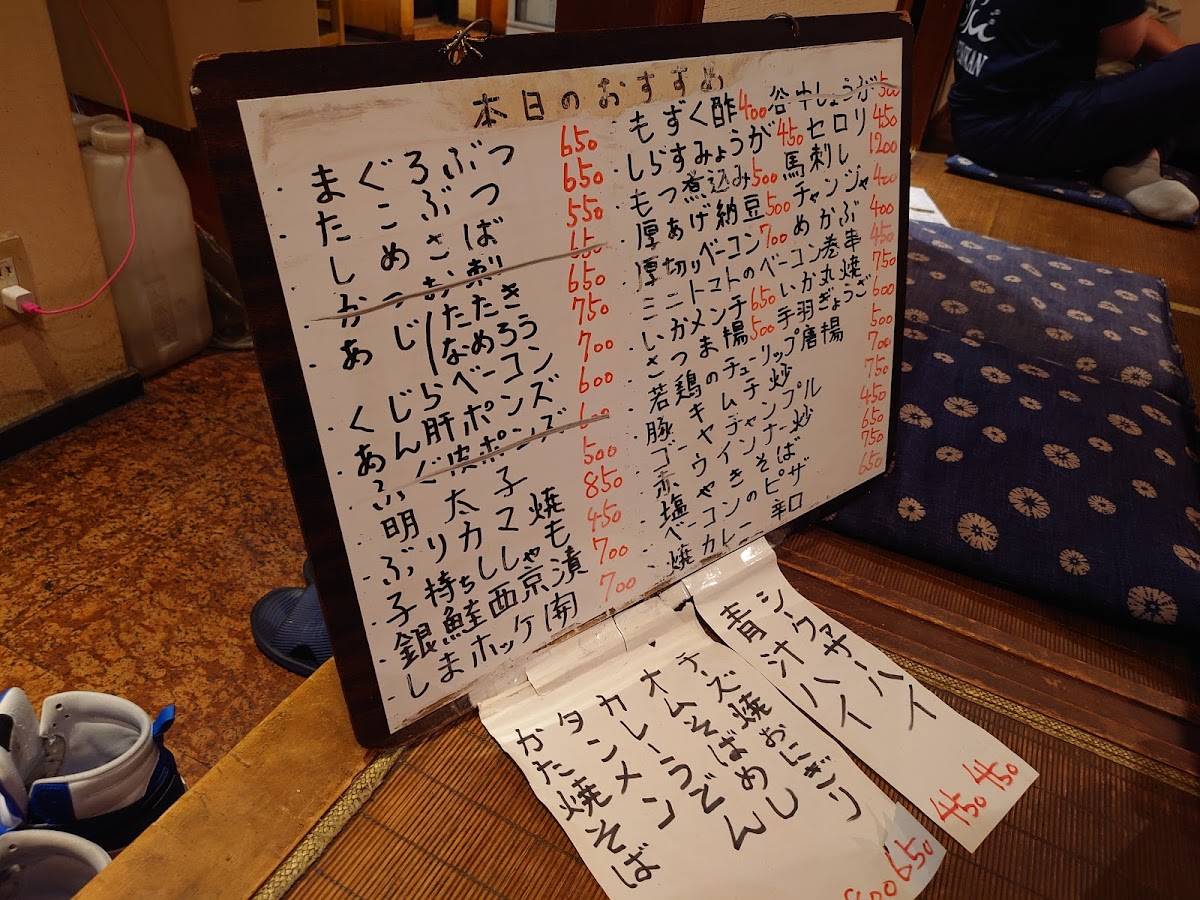 本日のおすすめ
・まぐろぶつ 650
・たこぶつ 650
・しめさば 550
・かつお刺 650
・あじ たたき 650
なめろう 750
・くじらベーコン 700
・あん肝ポンズ 600
・ふぐ皮ポンズ 600
・明太子 500
・ぶりカマ焼 850
・子持ちししゃも 450
・銀鮭西京漬 700
・しまホッケ開 700
・もずく酢 400 谷中しょうが 500
・しらすみょうが 450 セロリ 450
・もつ煮込み 500 馬刺し 1200
・厚あげ納豆 500 チャンジャ 400
・厚切りベーコン 700 めかぶ 400
・ミニトマトのベーコン巻串 450
・いかメンチ 650 いか丸焼 750
・さつま揚 500 手羽ぎょうざ 600
・若鶏のチューリップ唐揚 500
・豚キムチ炒 700
・ゴーヤチャンプル 750
・赤ウインナー炒 450
・塩やきそば 650
・ベーコンのピザ 750
・焼カレー 辛口 650
シークヮサーハイ 450
青汁ハイ 450
チーズ焼おにぎり
オムそばめし
カレーうどん 650
タンメン
かた焼そば